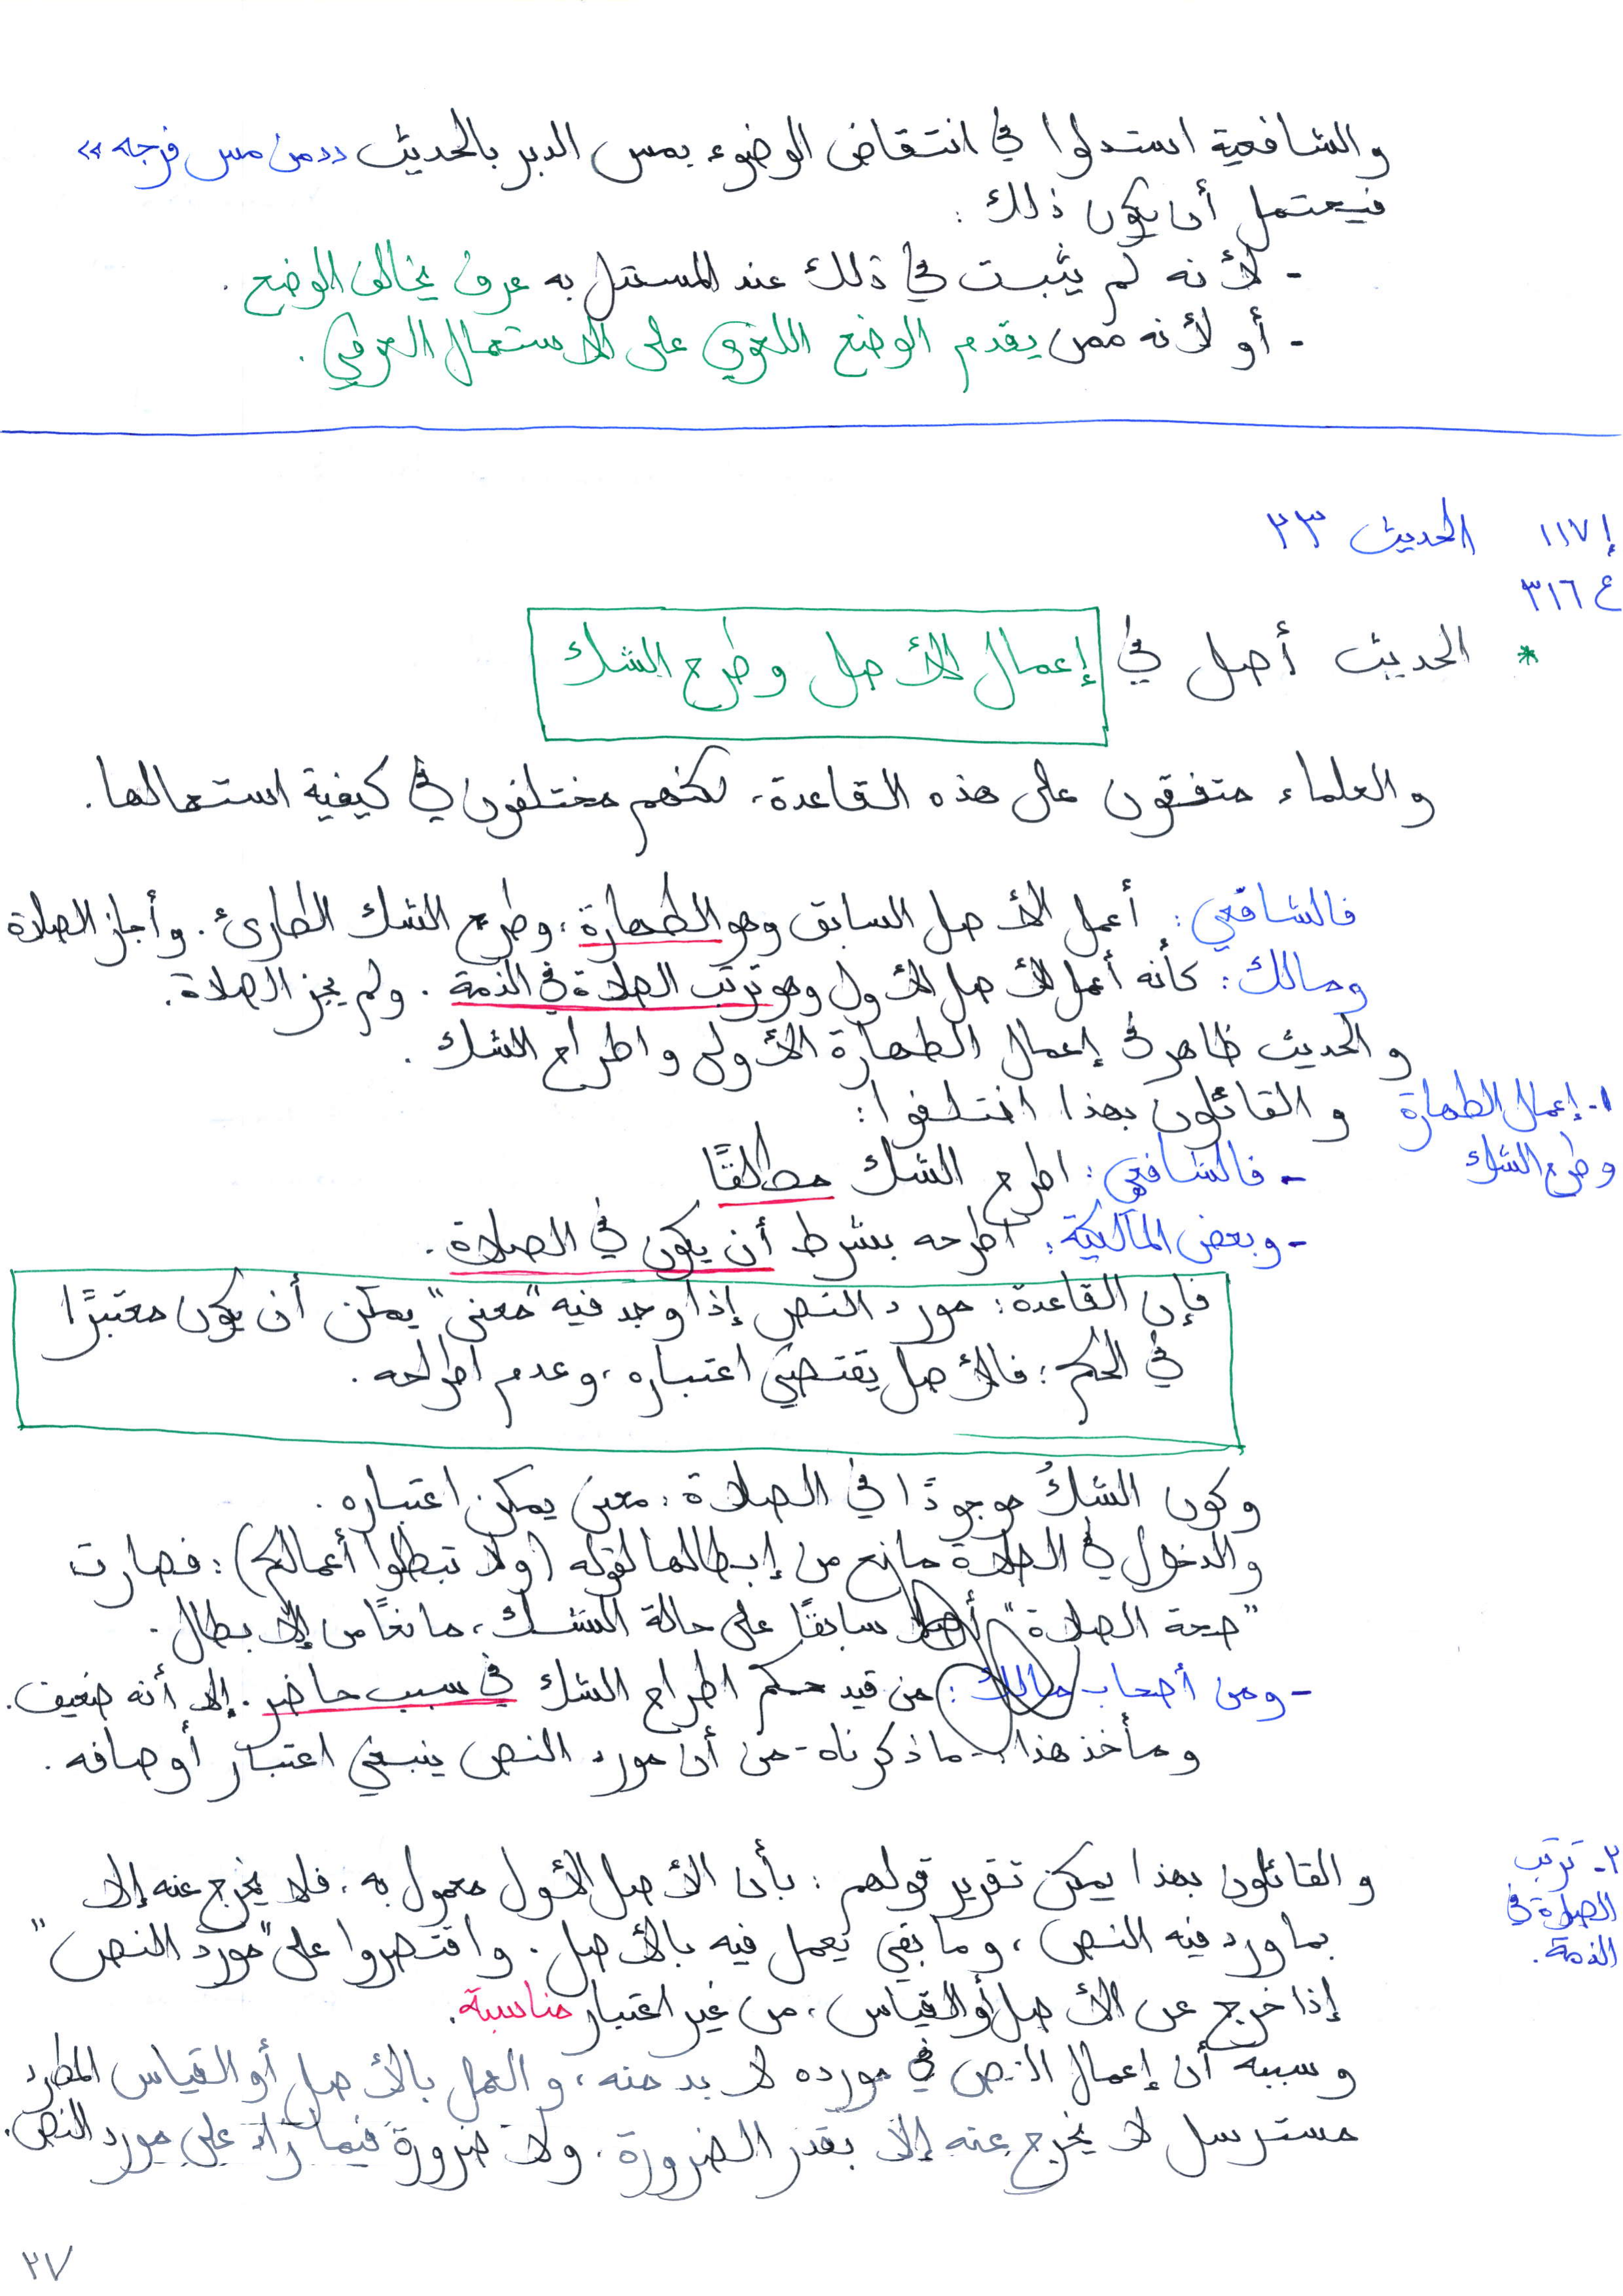 والشافعية استدلوا في انتقاض الوضوء بمس الدبر بالحديث «من مس فرجه»
فيحتمل أن يكون ذلك :
- لأنه لم يثبت في ذلك عند المستدل به عرف يخالف الوضع .
- أو لأنه ممن يقدم الوضع اللغوي على الاستعمال العرفي .
إ ١١٧ الحديث ٢٣
ع ٣١٦
* الحديث أصل في إعمال الأصل وطرح الشك
والعلماء متفقون على هذه القاعدة، لكنهم مختلفون في كيفية استعمالها .
فالشافعي : أعمل الأصل السابق وهو الطهارة ، وطرح الشك الطارئ . وأجاز الصلاة
ومالك : كأنه أعمل الأصل الأول وهو ترتب الصلاة في الذمة . ولم يجز الصلاة .
والحديث ظاهر في إعمال الطهارة الأولى واطراح الشك .
١- إعمال الطهارة والقائلون بهذا اختلفوا :
وطرح الشك
- فالشافعي : اطرح الشك مطلقًا
- وبعض المالكية : اطرحه بشرط أن يكون في الصلاة .
فإن القاعدة : مورد النص إذا وجد فيه "معنى" يمكن أن يكون معتبرًا
في الحكم : فالأصل يقتضي اعتباره ، وعدم اطراحه .
وكون الشكُ موجودًا في الصلاة : معنى يمكن اعتباره .
والدخول في الصلاة مانع من إبطالها لقوله (ولا تبطلوا أعمالكم) : فصارت
"صحة الصلاة" أصلا سابقًا على حالة الشك ، مانعًا من الإبطال .
- ومن أصحاب مالك : من قيد حكم اطراح الشك في سبب حاضر . إلا أنه ضعيف .
ومأخذ هذا - ما ذكرناه - من أن مورد النص ينبغي اعتبار أوصافه .
٢- ترتب
الصلاة في
الذمة .
والقائلون بهذا يمكن تقرير قولهم : بأن الأصل الأول معمول به ، فلا يخرج عنه إلا
بما ورد فيه النص ، وما بقي يعمل فيه بالأصل . واقتصروا على "مورد النص"
إذا خرج عن الأصل أو القياس ، من غير اعتبار مناسبة .
وسببه أن إعمال النص في مورده لا بد منه ، والعمل بالأصل أو القياس المطرد
مسترسل لا يخرج عنه إلا بقدر الضرورة . ولا ضرورة فيما زاد على مورد النص .
٢٧